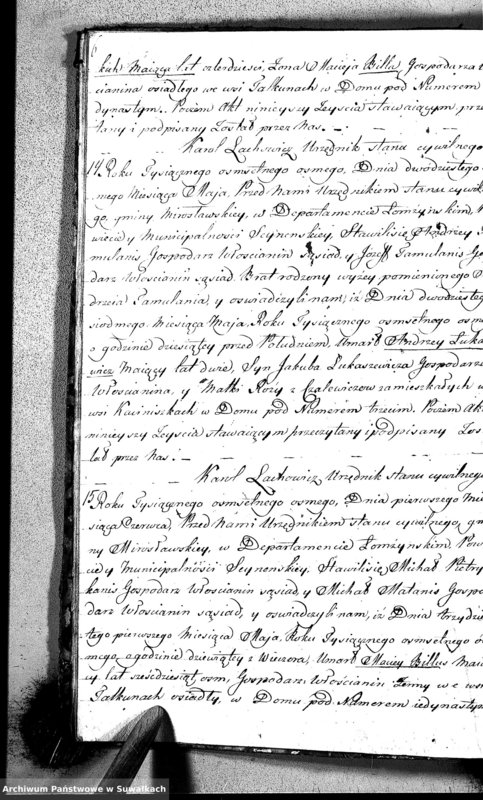 kich Maiąca lat czterdzieści, Zona Macieja Billa, Gospodarza
cianina osiadłego we wsi Palkunach w Domu pod Numerem
dynastym. Poczem Akt ninieyszy Zeyscia stawaiącym prze
tany i podpisany Został przez Nas. —
Karol Lachowicz Urzędnik stanu cywilnego
14. Roku Tysiącznego osmsetnego osmego, Dnia dwudziestego
mego Miesiąca Maja, Przed Nami Urzędnikiem stanu cywil
go, gminy Mirosławskiey, w Departamencie Łomżynskim,
wiecie y Municipalnosci Seynenskiey, Stawilisię Andrzey
mulanis, Gospodarz Włoscianin Sąsiad, y Jozef Pamulanis Go
darz Włoscianin sąsiad Brat rodzony wyzey pomienionego
drzeia Pamulania, y oswiadczyli nam, iż Dnia dwudziesteg
siodmego Miesiąca Maja, Roku Tysiącznego osmsetnego osm
o godzinie dziesiątey przed Południem, Umarł Andrzey Łuka
wicz Maiący lat dwie, Syn Jakuba Łukaszewicza Gospodarza
Włoscianina, y Matki Rozy z zamieszkałych w
wsi Kaciniszkach w Domu pod Numerem trzecim. Poczem Ak
ninieyszy Zeyscia stawaiącym przeczytany i podpisany Zos
tał przez Nas. —
Karol Lachowicz Urzędnik stanu cywilneg
15. Roku Tysiącznego osmsetnego osmego, Dnia pierwszego Mie
siąca Czerwca, Przed Nami Urzędnikiem stanu cywilnego, gm
ny Mirosławskiey, w Departamencie Łomżynskim, Pow
cie y Municipalności Seynenskiey. Stawilisię Michał Pietry
kanis Gospodarz Włoscianin sąsiad, y Michał Matanis Gospo
darz Włoscianin sąsiad, y oswiadczyli nam, iż Dnia trzydzie
stego pierwszego Miesiąca Maja, Roku Tysiącznego osmsetnego ós
mego, o godzinie dziewiątey z Wieczora, Umarł Maciey Billus Maią
cy lat szesdziesiąt osm, Gospodarz Włoscianin Zenny we wsi
Palkunach osiadły, w Domu pod Numerem iedynastym
Archiwum Państwowe w Suwałkach